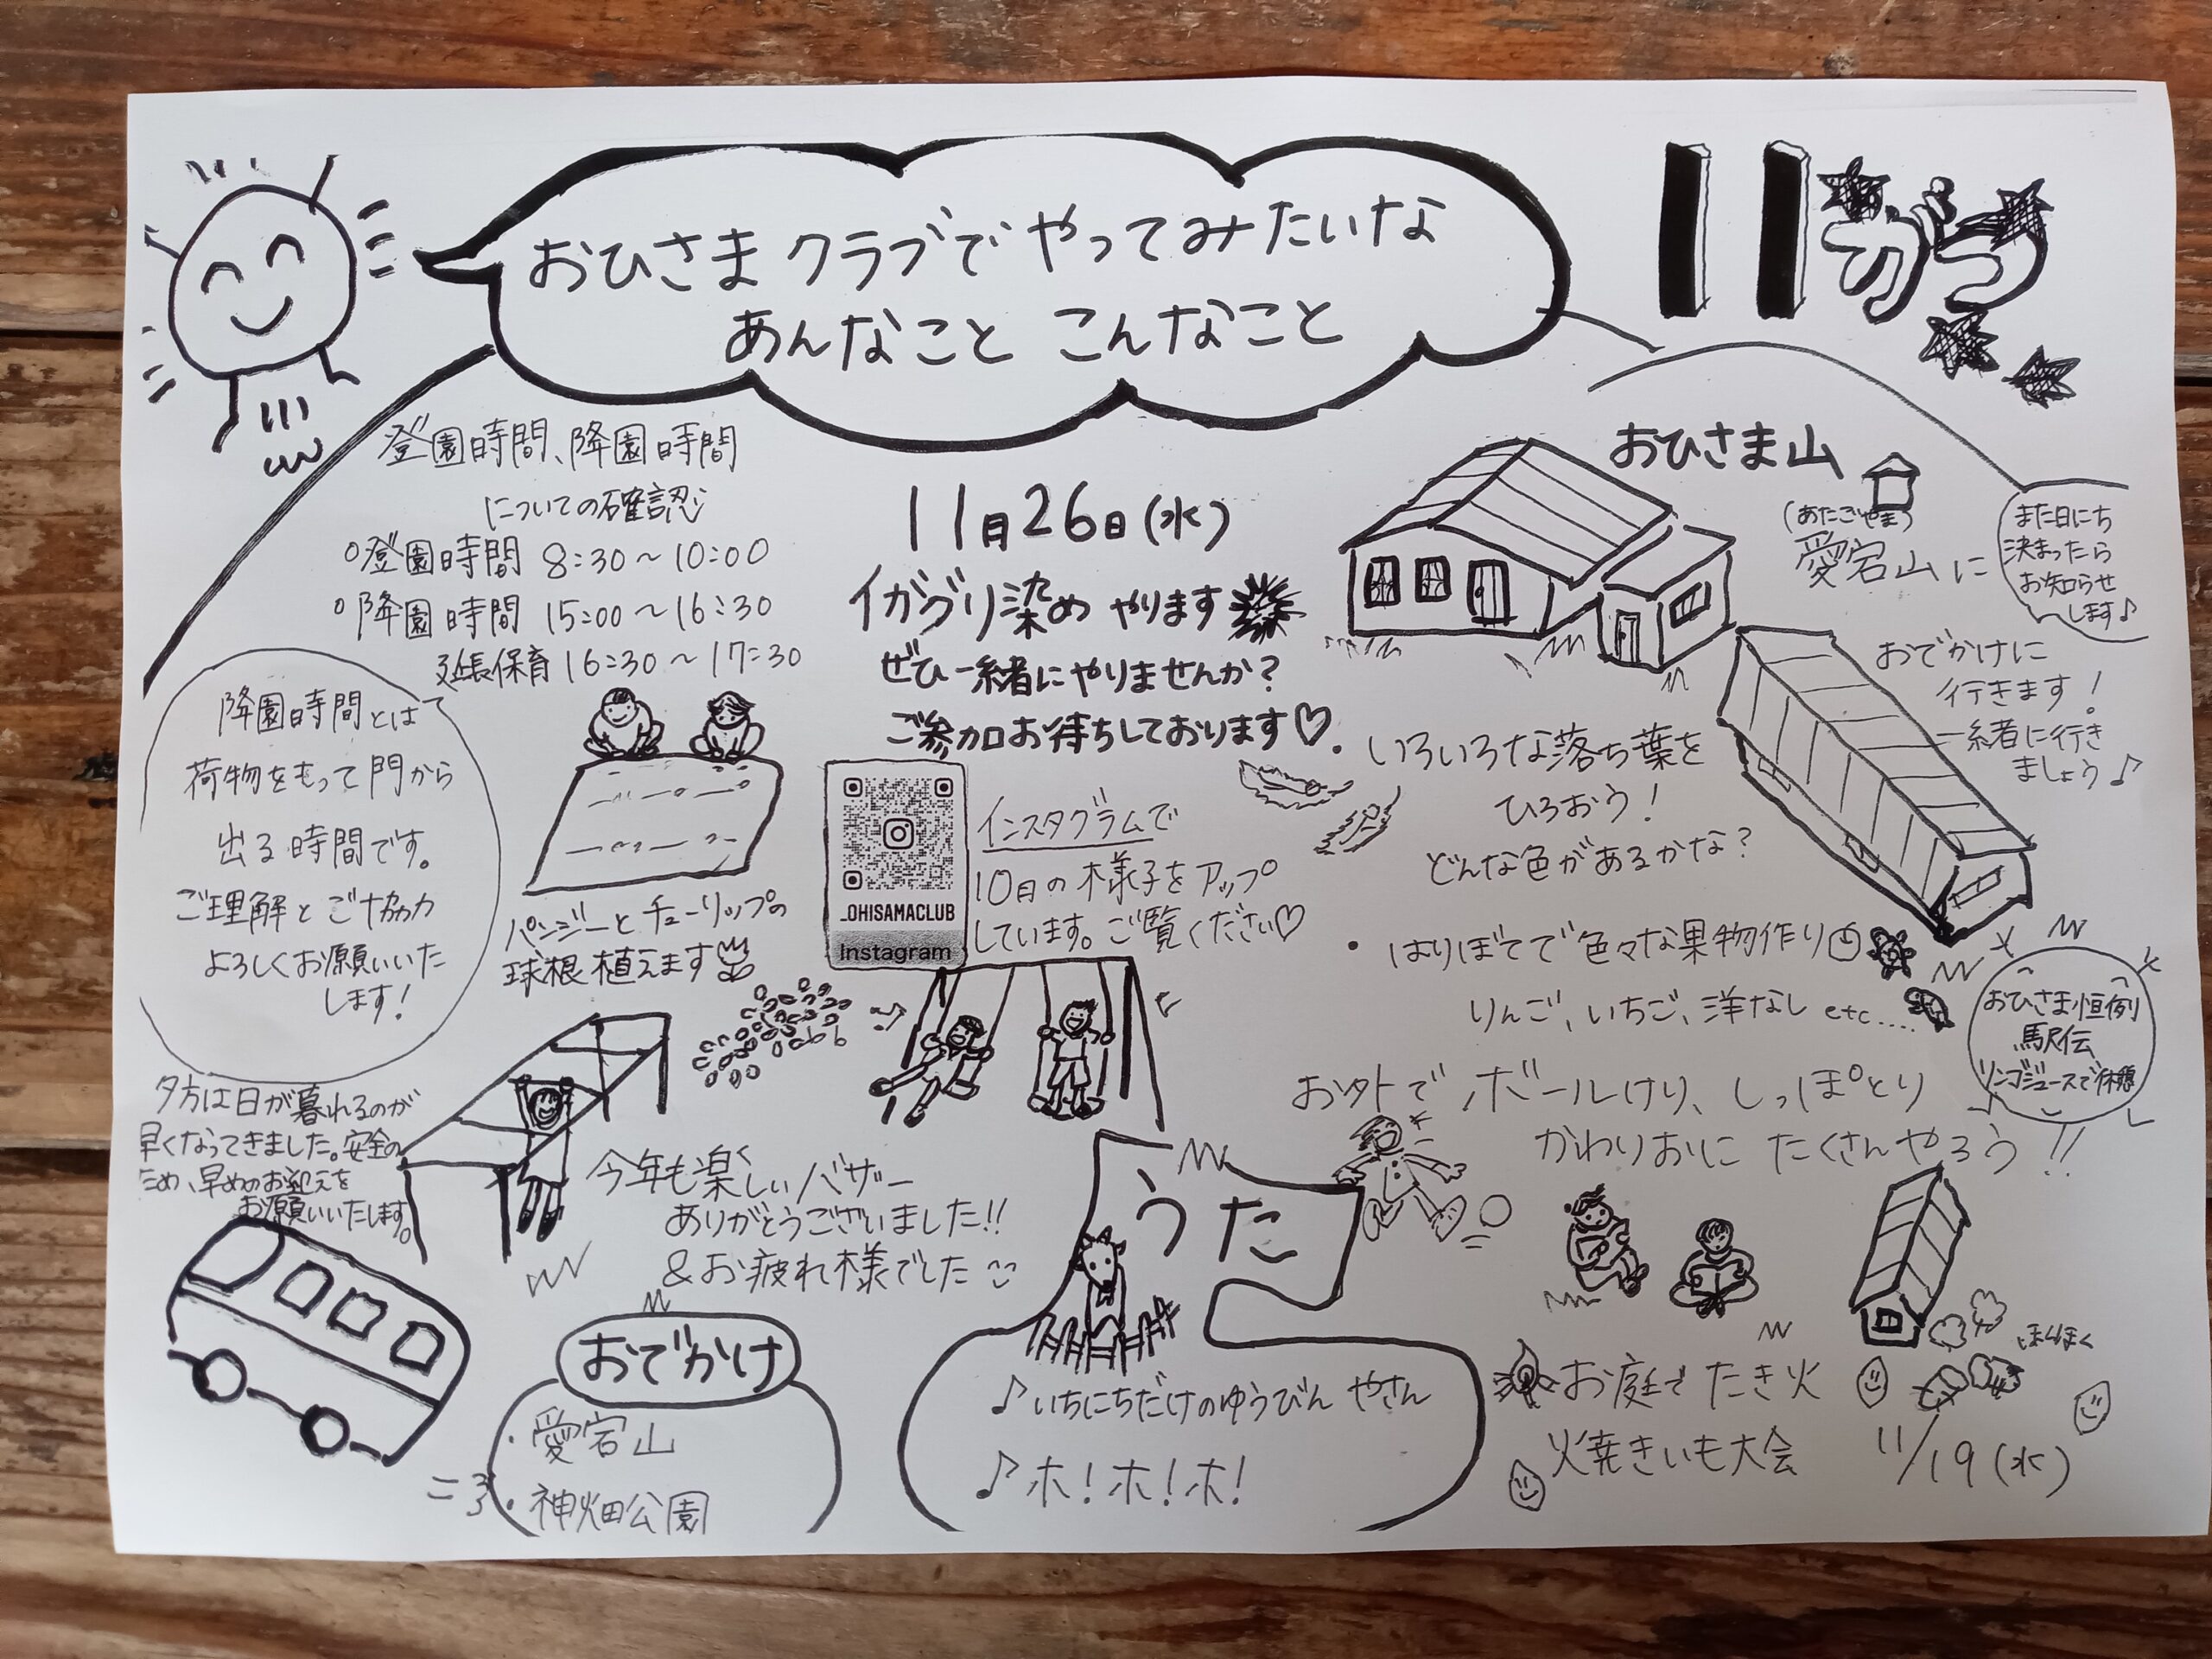 おひさまクラブでやってみたいな
あんなこと こんなこと
11がつ
登園時間、降園時間
についての確認
○登園時間 8:30~10:00
○降園時間 15:00~16:30
延長保育 16:30~17:30
降園時間とは
荷物をもって門から
出る時間です。
ご理解とご協力
よろしくお願いいた
します!
夕方は日が暮れるのが
早くなってきました。安全の
ため、早めのお迎えを
お願いいたします。
パンジーとチューリップの
球根植えます
11月26日(水)
イガグリ染め やります
ぜひ一緒にやりませんか?
ご参加お待ちしております♡
_OHISAMACLUB
Instagram
インスタグラムで
10月の様子をアップ
しています。ご覧ください♡
おひさま山
(あたごやま)
愛宕山に
おでかけに
行きます!
一緒に行き
ましょう♪
また日にち
決まったら
お知らせ
します♪
・いろいろな落ち葉を
ひろおう!
どんな色があるかな?
・はりぼてで色々な果物作り
りんご、いちご、洋なし etc....
おひさま恒例
駅伝
リンゴジュースで休憩
お外でボールけり、しっぽとり
かわりおに たくさんやろう!!
今年も楽しいバザー
ありがとうございました!!
&お疲れ様でした
おでかけ
・愛宕山
・神畑公園
うた
♪いちにちだけのゆうびんやさん
♪ホ!ホ!ホ!
お庭でたき火
火焼きいも大会 11/19(水)
ほくほく